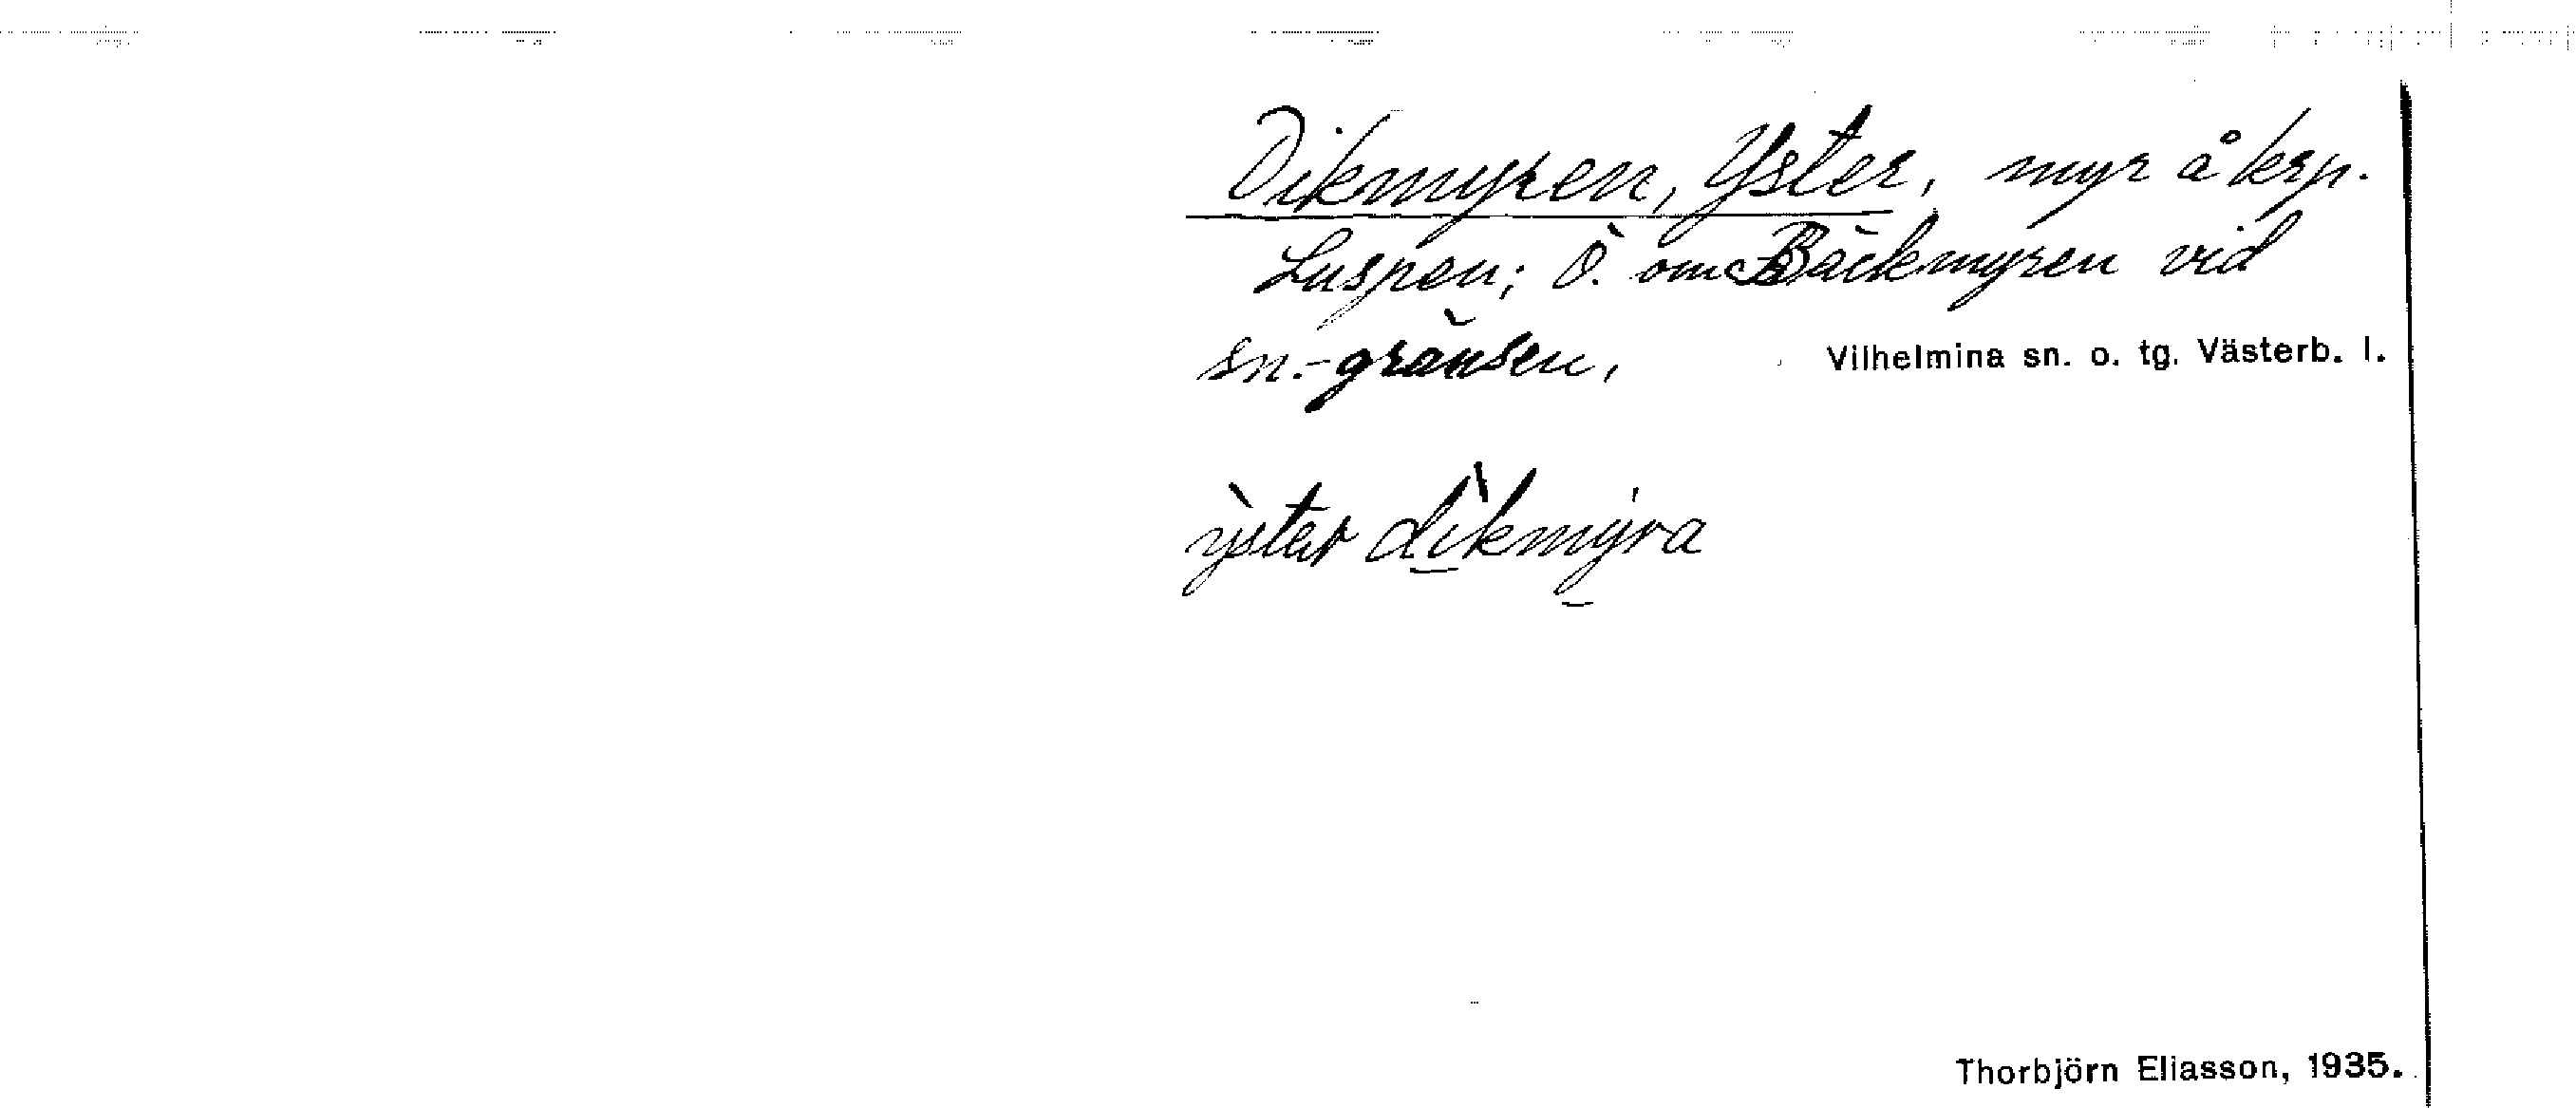 Dikmyren, Yster, myr å krp.
Luspen; Ö. om Bäckmyren vid
sn.-gränsen,
Vilhelmina sn. o. tg. Västerb. l.
ỳstar dìkmýra
Thorbjörn Eliasson, 1935.